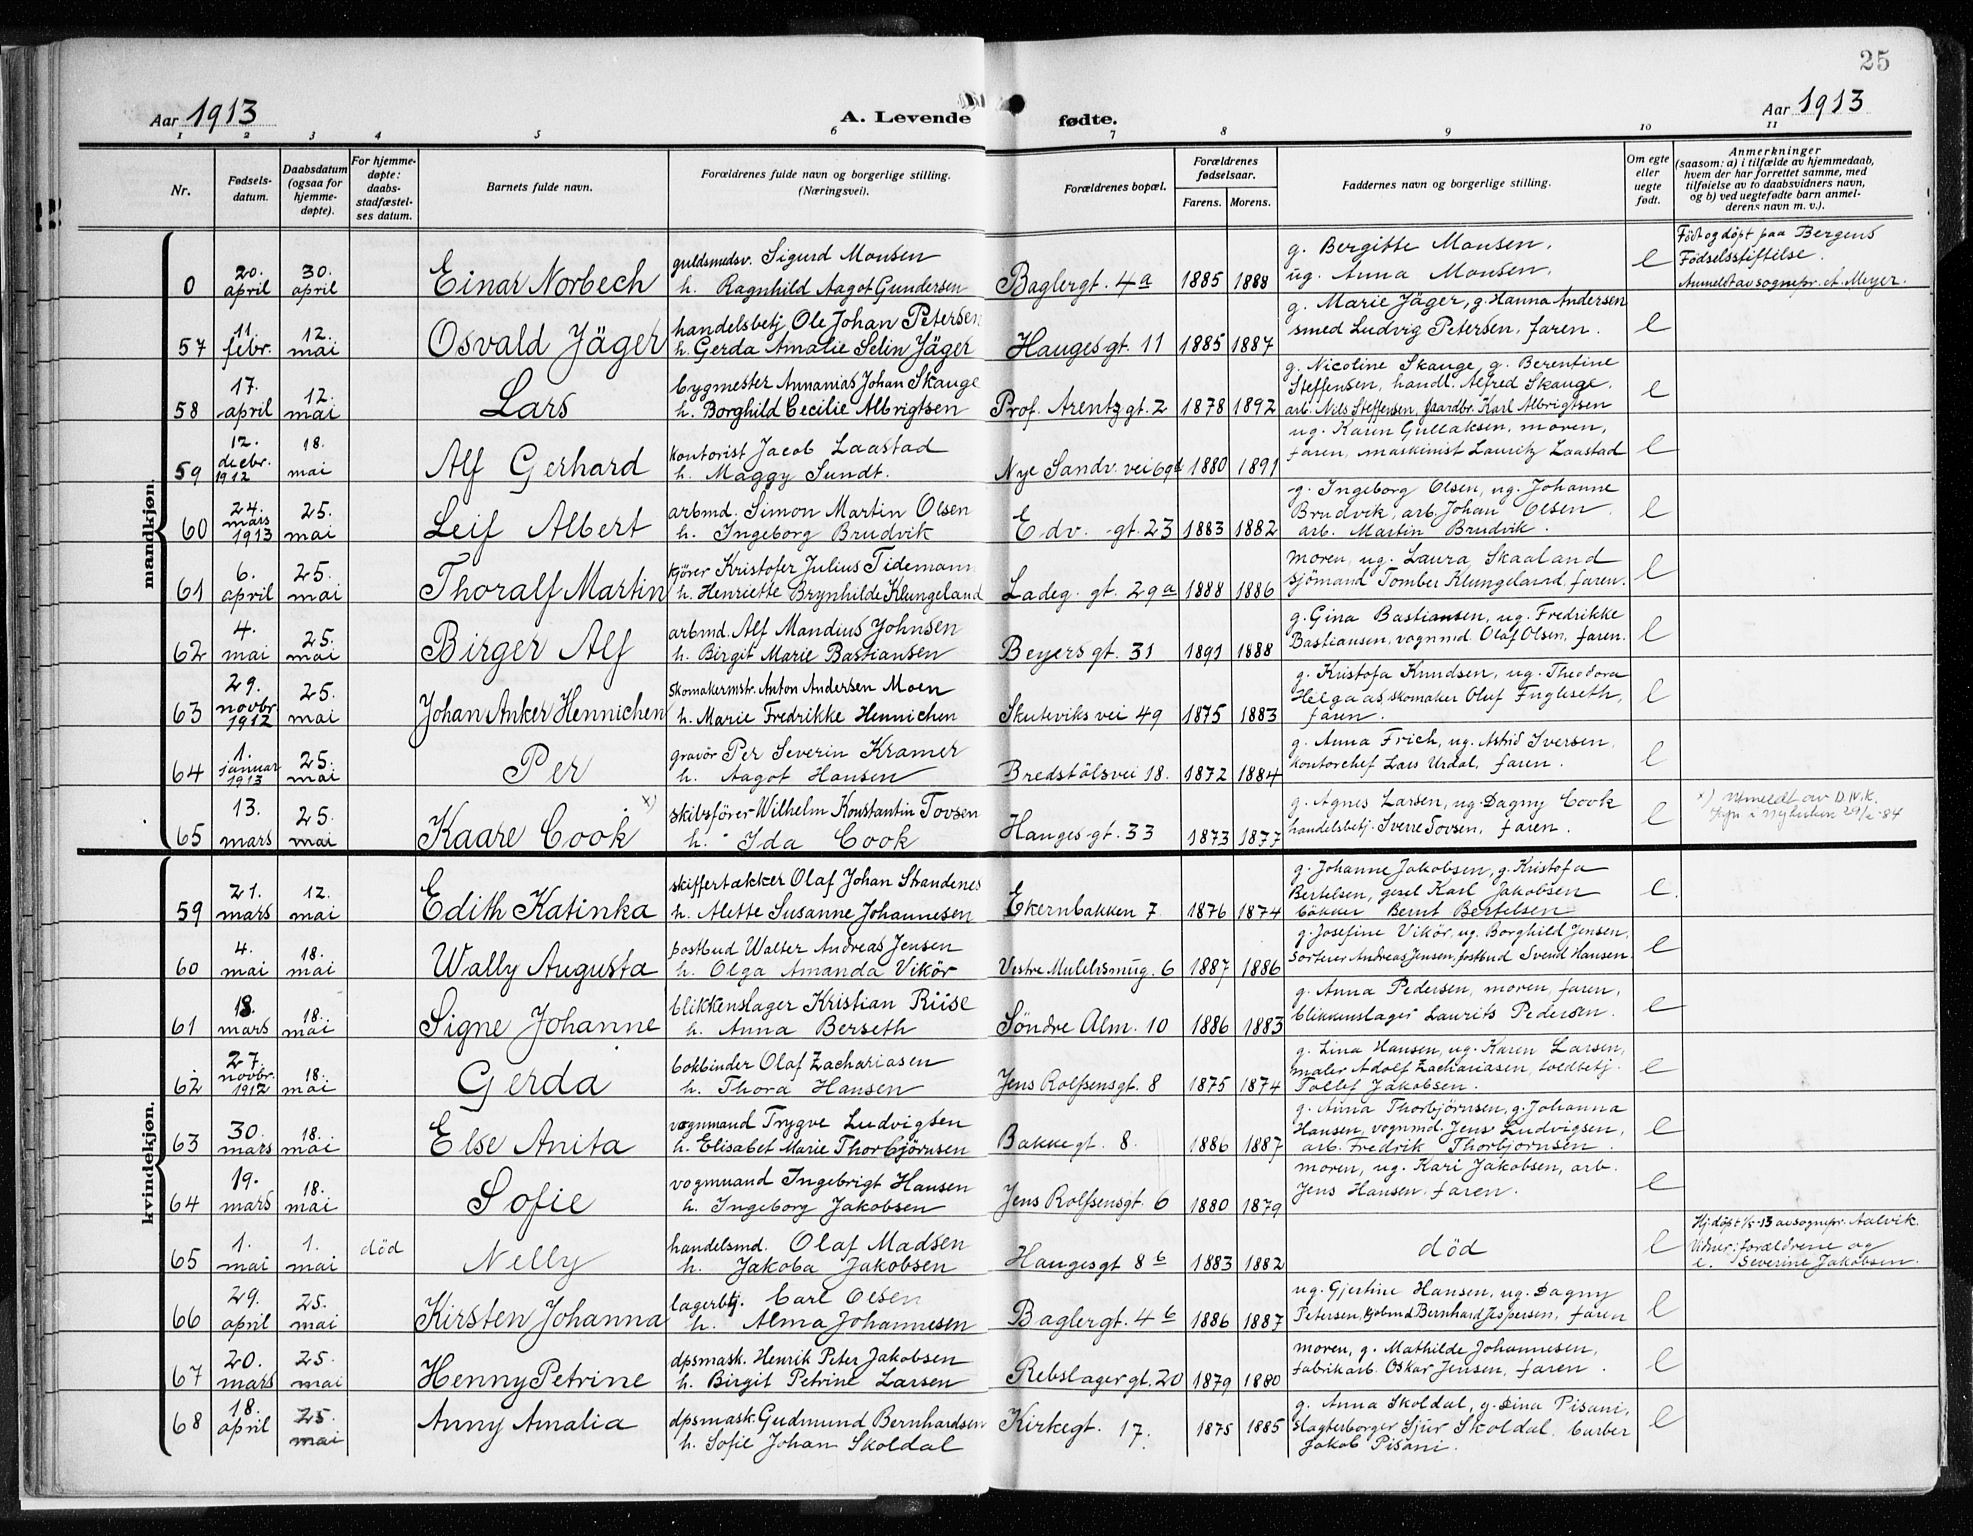 25
Aar 1913
A. Levende fødte.
Aar 1913
1 2 3 4 5 6 7 8 9 10 11
Nr.
Fødsels-
datum.
Daabsdatum
(ogsaa for
hjemme-
døpte).
For hjemme-
døpte:
daabs-
stadfæstel-
ses datum.
Barnets fulde navn.
Forældrenes fulde navn og borgerlige stilling.
(Næringsvei).
Forældrenes bopæl.
Forældrenes
fødselsaar.
Farens. Morens.
Faddernes navn og borgerlige stilling.
Om egte
eller
uegte
født.
Anmerkninger
(saasom: a) i tilfælde av hjemmedaab,
hvem der har forrettet samme, med
tilføielse av to daabsvidners navn,
og b) ved uegtefødte barn anmel-
derens navn m. v.).
mandkjøn.
0 20. april 30. april Einar Norbech
guldsmedsv. Sigurd Monsen
h. Ragnhild Aagot Gundersen
Baglergt. 4a 1885 1888
g. Bergitte Monsen,
ug. Anna Monsen.
e
Født og døpt paa Bergens
Fødselsstiftelse.
Anmeldt av sognepr. A. Meyer.
57 11. febr. 12. mai Osvald Jäger
handelsbetj. Ole Johan Petersen
h. Gerda Amalie Selin Jäger
Haugesgt. 11 1885 1887
g. Marie Jäger, g. Hanna Andersen
smed Ludvig Petersen, faren.
e
58 17. april 12. mai Lars
bygmester Annanias Johan Skauge
h. Borghild Cecilie Albrigtsen
Prof. Arentzgt. 2 1878 1892
g. Nicoline Skauge, g. Berentine
Steffensen, handl. Alfred Skauge,
arb. Nils Steffensen, gaardbr. Karl Albrigtsen
e
59 12. decbr. 1912 18. mai Alf Gerhard
kontorist Jacob Laastad
h. Maggy Sundt.
Nye Sandv. vei 69d 1880 1891
ug. Karen Gullaksen, moren,
faren, maskinist Lauritz Laastad
e
60 24. mars 1913 25. mai Leif Albert
arbmd. Simon Martin Olsen
h. Ingeborg Brudvik
Edv. gt. 23 1883 1882
g. Ingeborg Olsen, ug. Johanne
Brudvik, arb. Johan Olsen,
arb. Martin Brudvik.
e
61 6. april 25. mai Thoralf Martin
kjører Kristofer Julius Tidemann
h. Henriette Brynhilde Klungeland
Ladeg. gt. 29a 1888 1886
moren, ug. Laura Skaaland
sjömand Tomber Klungeland, faren.
e
62 4. mai 25. mai Birger Alf
arbmd. Alf Mandius Johnsen
h. Birgit Marie Bastiansen
Beyers gt. 31 1891 1888
g. Gina Bastiansen, ug. Fredrikke
Bastiansen, vognmd. Olaf Olsen, faren.
e
63 29. novbr. 1912 25. mai Johan Anker Hennichen
Skomakermstr. Anton Andersen Moen
h. Marie Fredrikke Hennichen
Skuteviksvei 49 1875 1883
g. Kristofa Knudsen, ug. Theodora
Helgaas, skomaker Oluf Fugleseth,
faren.
e
64 1. januar 1913 25. mai Per
gravör Per Severin Kramer
h. Aagot Hansen
Bredstölsvei 18. 1872 1884
g. Anna Frich, ug. Astrid Iversen,
kontorchef Lars Urdal, faren.
e
65 13. mars 25. mai Kaare Cook x)
skibsförer Wilhelm Konstantin Tovsen
h. Ida Cook
Haugesgt. 33 1873 1877
g. Agnes Larsen, ug. Dagny Cook
handelsbetj. Sverre Tovsen, faren.
e
x) Utmeldt av D.N.K.
kvindekjøn.
59 21. mars 12. mai Edith Katinka
skiffertækker Olaf Johan Strandenes
h. Alette Susanne Johannesen
Ekernbakken 7. 1876 1874
g. Johanne Jakobsen, g. Kristofa
Bertelsen, gesel Karl Jakobsen
bökker Bernt Bertelsen
e.
60 4. mai 18. mai Wally Augusta
postbud Walter Andreas Jensen
h. Olga Amanda Vikör
Vestre Mulelvsmug. 6 1887 1886
g. Josefine Vikör, ug. Borghild Jensen,
Sorterer Andreas Jensen, postbud Svend Hansen.
e
61 18. mars 18. mai Signe Johanne
blikkenslager Kristian Riise
h. Anna Berseth
Söndre Alm. 10 1886 1883
g. Anna Pedersen, moren, faren,
blikkenslager Laurits Pedersen.
e
62 27. novbr. 1912 18. mai Gerda
bokbinder Olaf Zachariasen
h. Thora Hansen
Jens Rolfsensgt. 8 1875 1874
g. Lina Hansen, ug. Karen Larsen,
maler Adolf Zachariasen, toldbetj.
Tollef Jakobsen.
e
63 30. mars 18. mai Else Anita
vognmand Trygve Ludvigsen
h. Elisabet Marie Thorbjörnsen
Bakkegt. 8. 1886 1887
g. Anna Thorbjörnsen, g. Johanna
Hansen, vognmd. Jens Ludvigsen,
arb. Fredrik Thorbjörnsen.
e
64 19. mars 18. mai Sofie
vogmand Ingebrigt Hansen
h. Ingeborg Jakobsen
Jens Rolfsensgt. 6 1880 1879
moren, ug. Kari Jakobsen, arb.
Jens Hansen, faren.
e
65 1. mai 1. mai død Nelly
handelsmd. Olaf Madsen
h. Jakoba Jakobsen
Haugesgt 8b 1883 1882
død
e
Hj.døpt 1/5-13 av sognepr. Aalvik.
Vidner: forældrene og
e. Severine Jakobsen.
66 29. april 25. mai Kirsten Johanna
lagerbtj. Carl Olsen
h. Alma Johannesen
Baglergt. 4b 1886 1887
ug. Gjertine Hansen, ug. Dagny
Petersen, kjøbmd Bernhard Jespersen, faren
e
67 20. mars 25. mai Henny Petrine
dpsmask. Henrik Peter Jakobsen
h. Birgit Petrine Larsen
Rebslagergt. 20 1879 1880
moren, g. Mathilde Johannesen,
fabrikarb. Oskar Jensen, faren.
e
68 18. april 25. mai Anny Amalia
dpsmask. Gudmund Bernhardsen
h. Sofie Johan Skoldal
Kirkegt. 17. 1875 1885
g. Anna Skoldal, g. Dina Pisani,
slagterborger Sjur Skoldal, barber
Jakob Pisani.
e